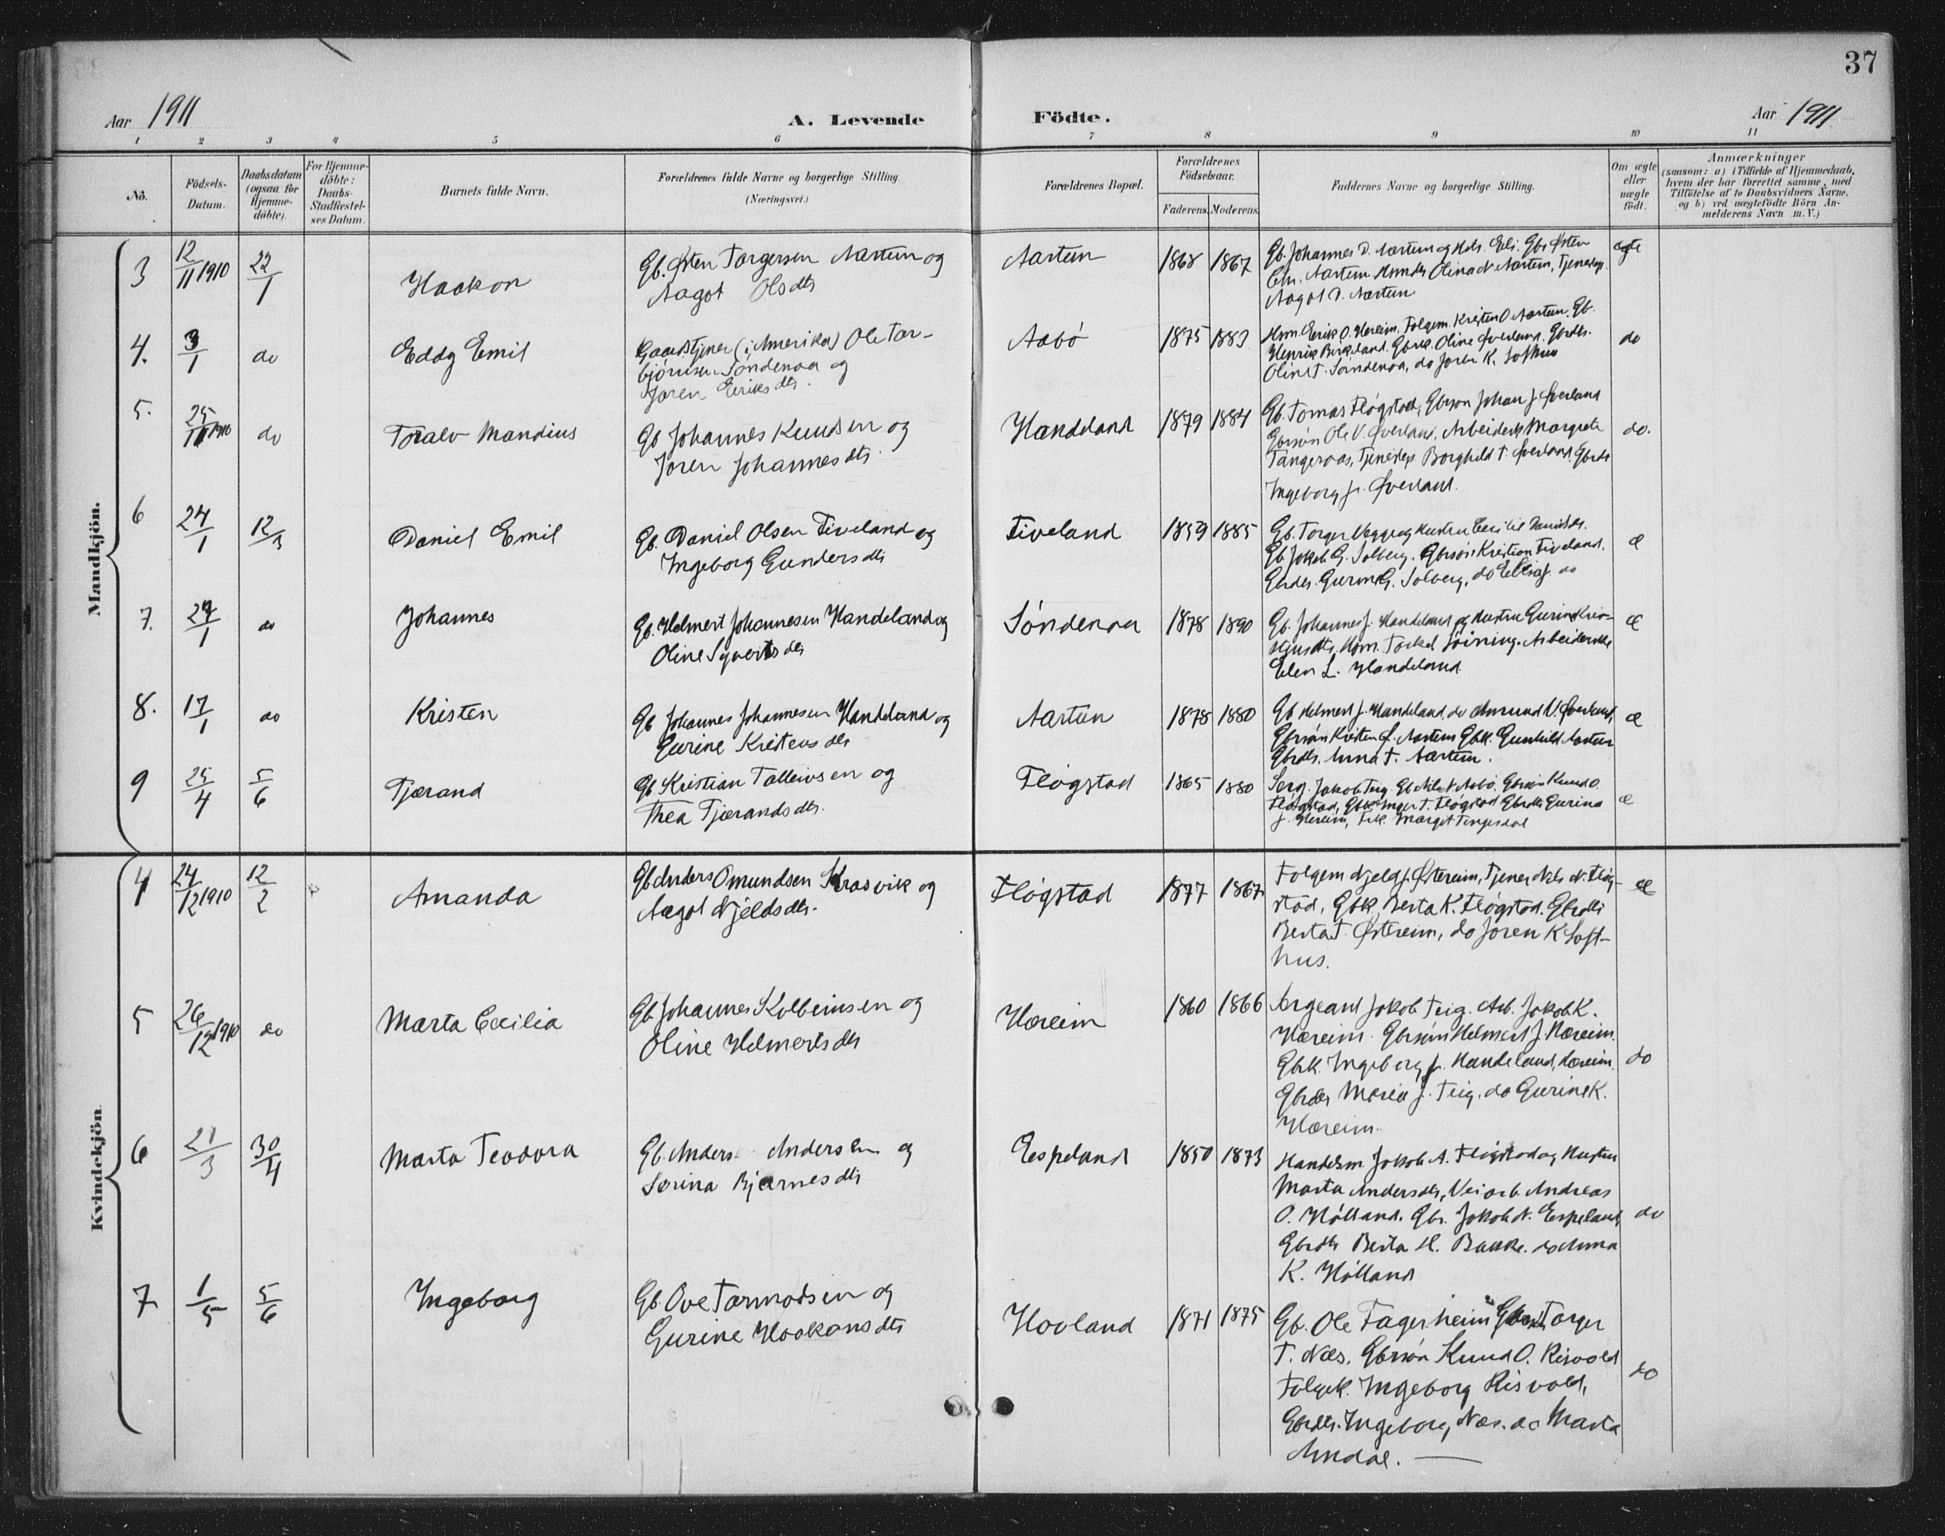 37
Aar 1911 A. Levende Födte. Aar 1911
1 2 3 4 5 6 7 8 9 10 11
No.
Födsels-
Datum.
Daabsdatum
(ogsaa for
Hjemme-
döbte).
For Hjemme-
döbte:
Daabs-
Stadfæstel-
ses Datum.
Barnets fulde Navn.
Forældrenes fulde Navne og borgerlige Stilling.
(Næringsvei.)
Forældrenes Bopæl.
Forældrenes
Födselsaar.
Faderens. Moderens.
Faddernes Navne og borgerlige Stilling.
Om ægte
eller
uægte
födt.
Anmærkninger
(saasom: a) i Tilfælde af Hjemmedaab,
hvem der har forrettet samme, med
Tilföielse af to Daabsvidners Navne.
og b) ved uægtefödte Börn An-
melderens Navn m. V.)
Mandkjön.
3 12/11 1910 22/1 Haakon
Gb. Østen Torgersen Aartun og
Aagot Olsdtr
Aartun 1868 1867
Gb. Johannes D. Aartun og Hstr. Eli. Gbs Østen
Chr. Aartun Olina N. Aartun, Tjenestep.
Aagot D. Aartun
ægte
4. 3/1 do Eddy Emil
Gaardstjener (i Amerika) Ole Tor-
bjørnsen Søndenaa og
Joren Eriksdtr.
Aabö 1875 1883
Hsm. Erik O. Hereim. Folgem. Kristen O Aartun. Gb.
Henrik Birkeland. Gbrk. Oline Øverland. Gbrdtr.
Oline T. Søndenaa, do Joren K. Lofthus
do
5. 25/11 1910 do Toralv Mandius
Gb Johannes Knudsen og
Joren Johannesdtr.
Handeland 1879 1884
Gb. Tomas Fløgstad, Gbrsøn Johan J. Øverland
Gbrsøn Ole V. Øverland. Arbeidersk Margrete
Tangeraas, Tjenestep Borghild T. Øverland, Gbrdtr
Ingeborg J. Øverland.
do.
6 24/1 12/3 Daniel Emil
Gb. Daniel Olsen Tiveland og
Ingeborg Gundersdtr
Tiveland 1859 1885
Gb. Torger Vegge og Hustru Cecilie Danielsdtr.
Gb Jakob G. Solberg. Gbrsøn Kristian Tiveland.
Gbrdtr. Gurine G. Solberg, do J. do
Æ
7. 27/1 do Johannes
Gb. Helmert Johannesen Handeland og
Oline Syvertsdtr
Söndenaa 1878 1890
Gb. Johannes J. Handeland og Hustru Gurine Kris-
Hsm. Torkel Löining. Arbeiderske
Elen L. Handeland
Æ
8. 17/1 do Kristen
Gb Johannes Johannesen Handeland og
Gurine Kristensdtr
Aartun 1878 1880
Gb Helmert J. Handeland, do Amund V. Øverland,
Gbrsøn Kristen O. Aartun Gbk. Gunhild Aartun
Gbrdtr. Anna T. Aartun.
Æ
9 25/4 5/6 Tjærand
Gb. Kristian Talleivsen og
Thea Tjærandsdtr.
Fløgstad 1865 1880
Serg. Jakob Teig. Gb Nils N Aabø. Gbrsøn Knud O.
Fløgstad, Gbk Inger T. Fløgstad Gbrdtr Gurina
J. Hereim, Frk. Margit Tengesdal
Æ
Kvindekjön.
4 24/12 1910 12/2 Amanda
Gb Anders Omundsen Kraavik og
Aagot Njeldsdtr.
Fløgstad 1877 1867
Folgem Njeld J. Østereim, Tjener Nils N. Fløg-
stad, Gbk. Berta K. Fløgstad. Gbrdtr
Berta T. Østereim, do Joren K Loft-
hus.
Æ
5 26/12 1910 do Marta Cecilia
Gb Johannes Kolbeinsen og
Oline Helmertsdtr
Hæreim 1860 1866
Sergeant Jakob Teig. Arb. Jakob K.
Hæreim. Gbrsøn Helmert J. Hæreim.
Gbk. Ingeborg J. Handeland, Hæreim.
Gbrdtr Maria J. Teig. do Gurine K.
Hæreim.
do
6 21/3 30/4 Marta Teodora
Gb. Anders Andersen og
Serina Bjarnesdtr
Espeland 1850 1873
Handelsm Jakob A. Fløgstad og Hustru
Marta Andersdtr, Veiarb Andreas
O. Hölland. Gbr. Jakob N. Espeland,
Gbrdtr Berta H. Bakke. do Anna
K. Hölland
do
7 1/5 5/6 Ingeborg
Gb. Ove Tormodsen og
Gurine Haakonsdtr
Hovland 1871 1875
Gb. Ole Fagerheim Torger
T. Næs. Gbrsøn Knud O. Risvold
Folgek. Ingeborg Risvold,
Gbrdtr. Ingeborg Næs. do Marta
Amdal.
do